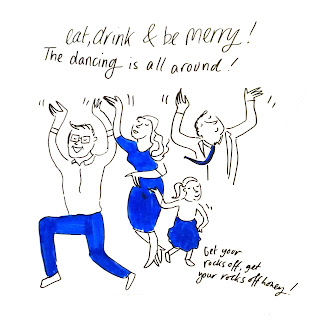 eat, drink & be merry!
The dancing is all around!
Get your
rocks off, get
your rocks off honey!